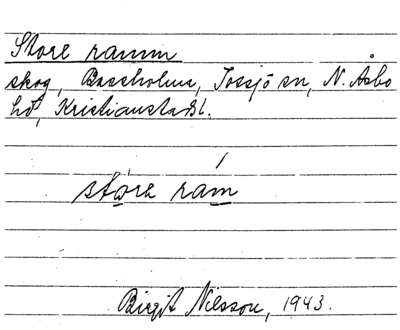 Store ramm
skog, Bassholma, Tossjö sn, N. Åsbo
hd, Kristianstads l.
störe ram
Birgit Nilsson, 1943.